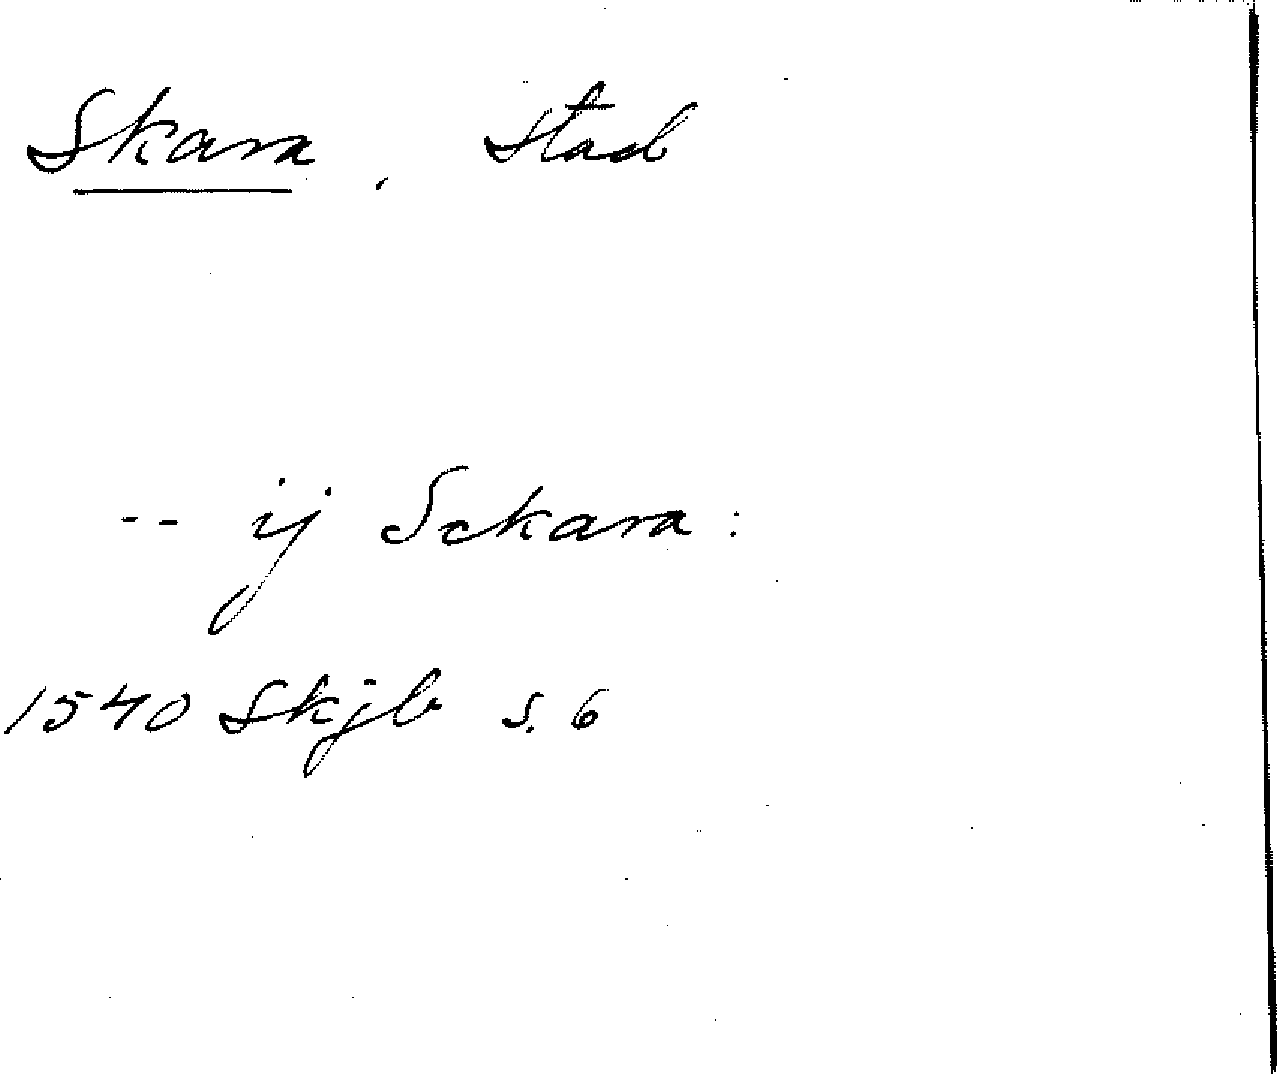 Skara, stad
-- ij Sckara:
1540 Skjb s. 6